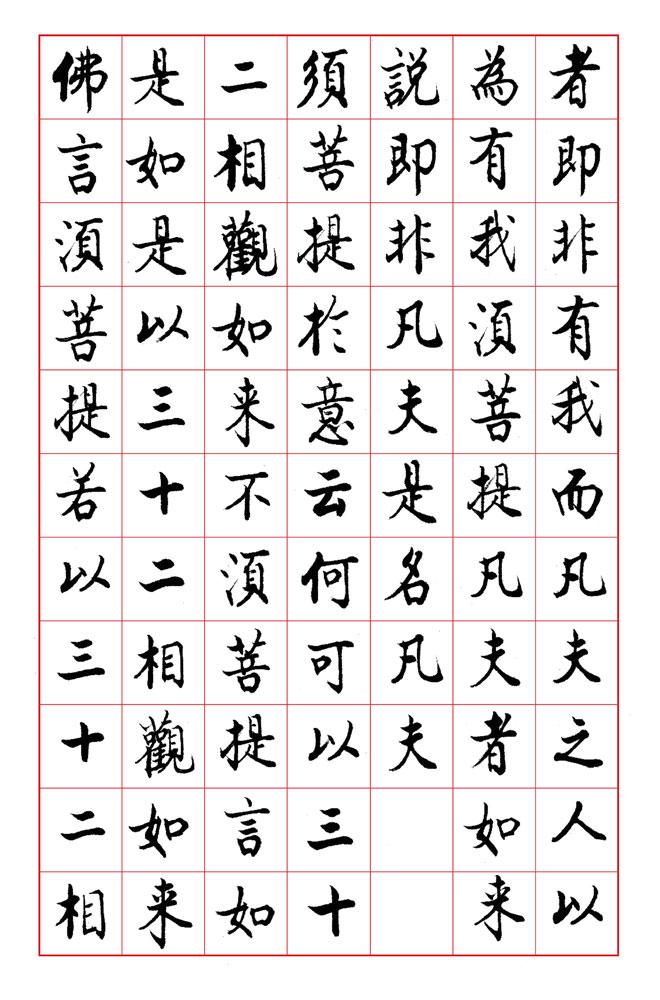 者即非有我而凡夫之人以
為有我湏菩提凡夫者如来
説即非凡夫是名凡夫
須菩提於意云何可以三十
二相觀如来不湏菩提言如
是如是以三十二相觀如来
佛言湏菩提若以三十二相